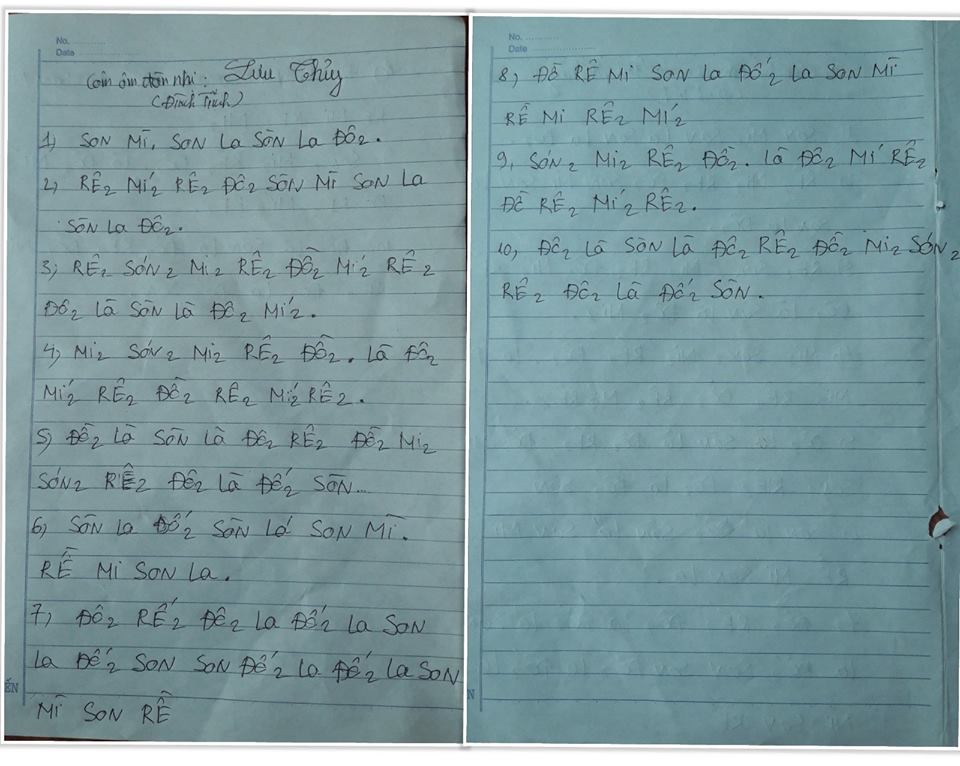 No. ............
Date ........................
Cảm âm đàn nhị: Lưu Thủy
(Đình Trịnh)
1) SON MÌ. SON LA SÒN LA ĐÔ2.
2) RÊ2 MÍ2 RÊ2 ĐÔ2 SÒN MÌ SON LA
SÒN LA ĐÔ2.
3) RÊ2 SÓN2 Mi2 RÊ2 ĐỒ2 MÍ2 RÊ2
ĐÔ2 LÀ SÒN LÀ ĐÔ2 MÍ2.
4) Mi2 SÓN2 Mi2 RÊ2 ĐỒ2. LÀ ĐÔ2
MÍ2 RÊ2 ĐỒ2 RÊ2 MÍ2 RÊ2.
5) ĐỒ2 LÀ SÒN LÀ ĐÔ2 RÊ2 ĐỒ2 Mi2
SÓN2 RÊ2 ĐÔ2 LÀ ĐỐ2 SÒN...
6) SÒN LA ĐỐ2 SÒN LÁ SON MÌ.
RỀ Mi SON LA.
7) ĐÔ2 RẾ2 ĐÔ2 LA ĐỐ2 LA SON
LA ĐỐ2 SON SON ĐỐ2 LA ĐỐ2 LA SON
MÌ SON RỀ
No. ............
Date ........................
8) ĐỒ RỀ Mi SON LA ĐỐ2 LA SON MÌ
RỀ Mi RÊ2 MÍ2
9, SÓN2 Mi2 RÊ2 ĐỒ2. LÀ ĐÔ2 MÍ RÊ2
ĐỒ RÊ2 MÍ2 RÊ2.
10, ĐÔ2 LÀ SÒN LÀ ĐÔ2 RÊ2 ĐỒ2 Mi2 SÓN2
RÊ2 ĐÔ2 LÀ ĐỐ2 SÒN.